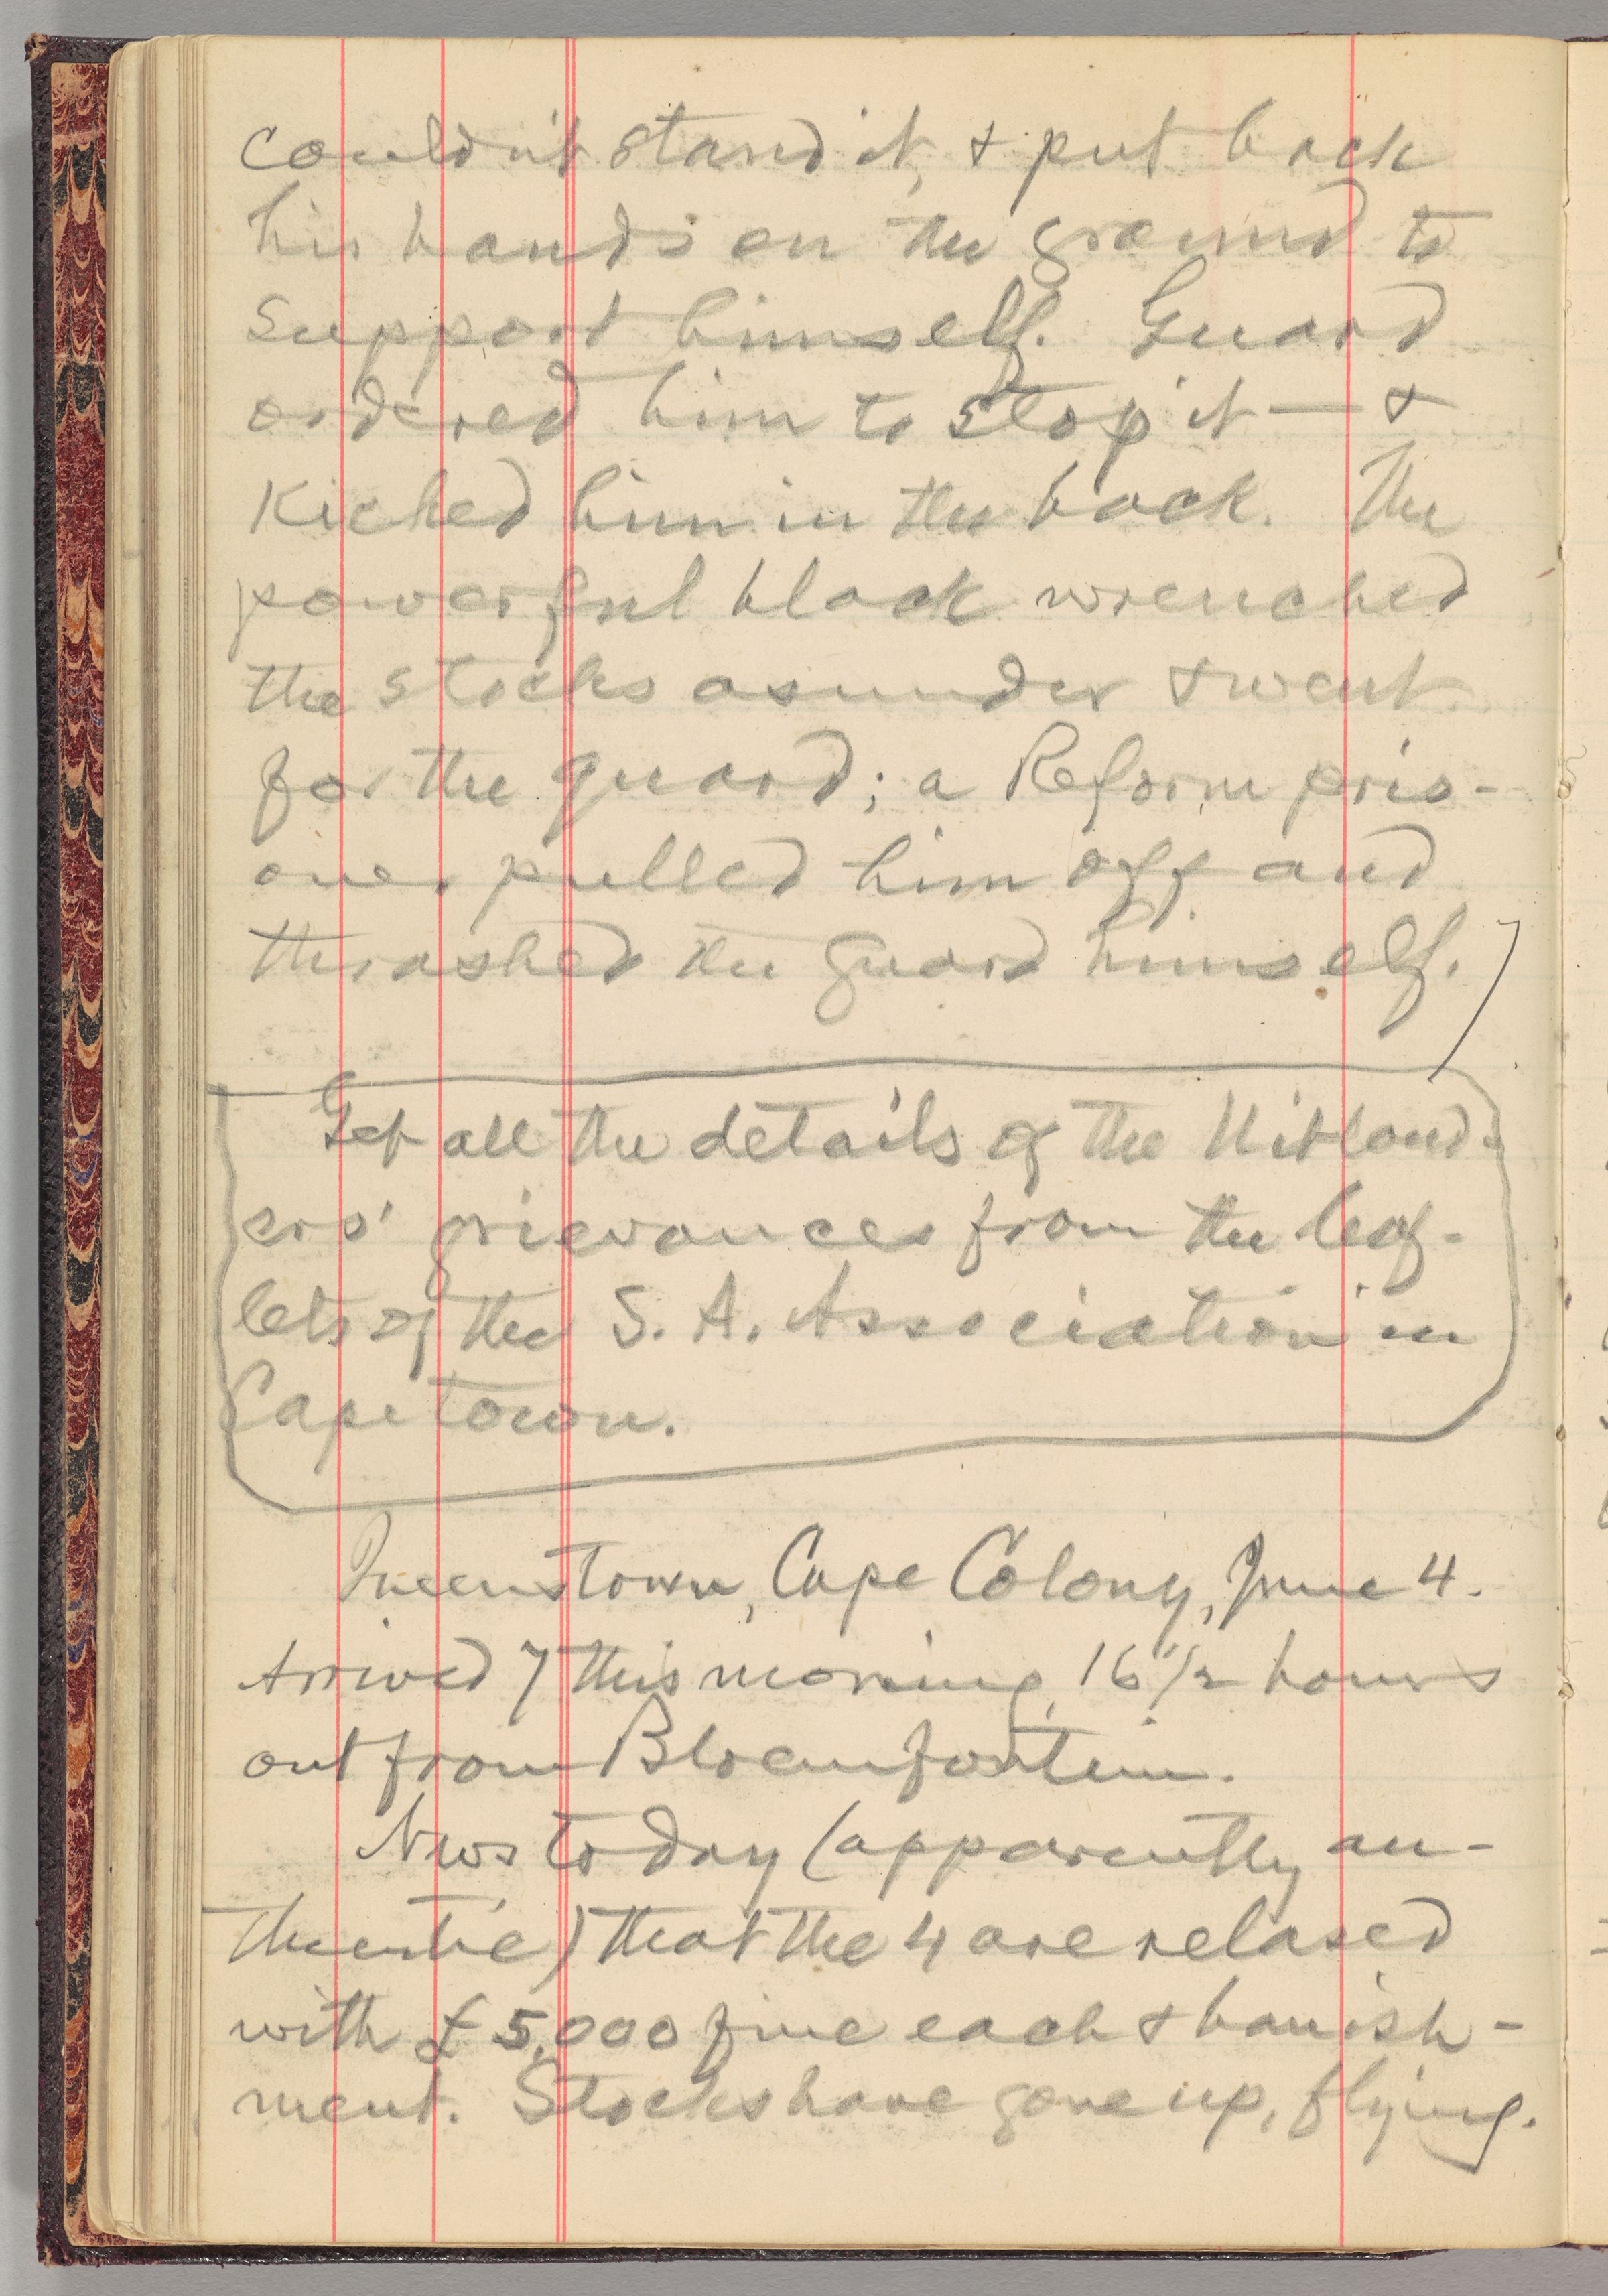 couldn't stand it, & put back
his hands on the ground to
support himself. Guard
ordered him to stop it — &
kicked him in the back. The
powerful black wrenched
the stocks asunder & went
for the guard; a Reform pris-
oner pulled him off and
thrashed the guard himself.
Get all the details of the Uitland-
ers' grievances from the leaf-
lets of the S. A. Association in
Capetown.
Queenstown, Cape Colony, June 4.
Arrived 7 this morning, 16 1/2 hours
out from Bloemfontein.
News today (apparently au-
thentic) that the 4 are relased
with £5,000 fine each & banish-
ment. Stocks have gone up, flying.